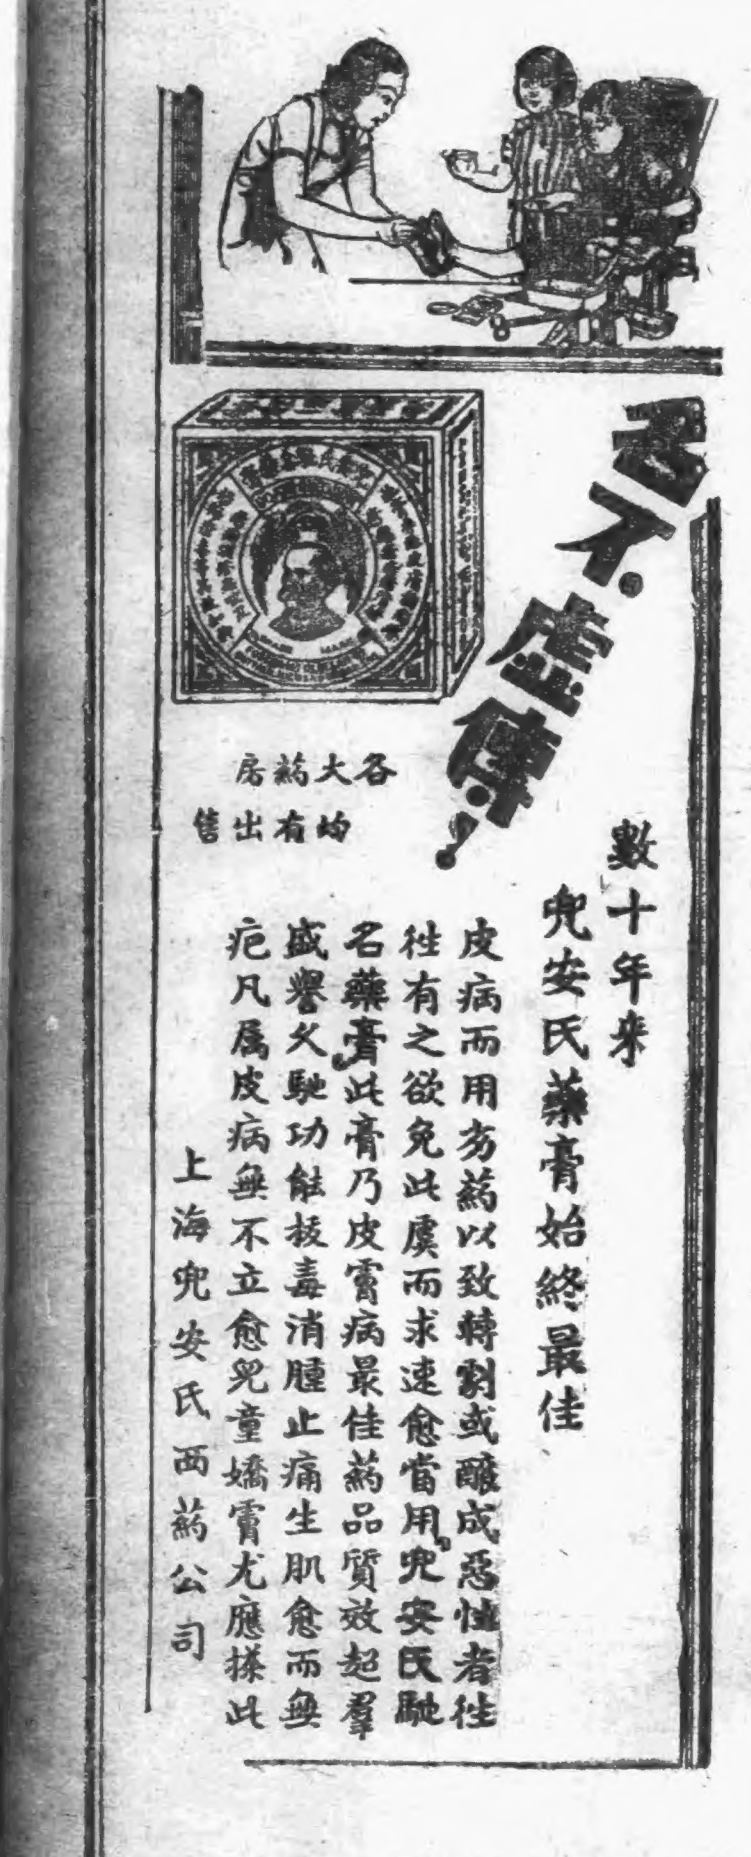 名不虛傳！
數十年来
兜安氏藥膏始終最佳
皮病而用劣葯以致轉劇或釀成惡性者往
往有之欲免此虞而求速愈當用兜安氏馳
名藥膏此膏乃皮膚病最佳葯品質效超羣
盛譽久馳功能拔毒消腫止痛生肌愈而無
疤凡属皮病無不立愈兒童嬌膚尤應搽此
各大葯房
均有出售
上海兜安氏西葯公司